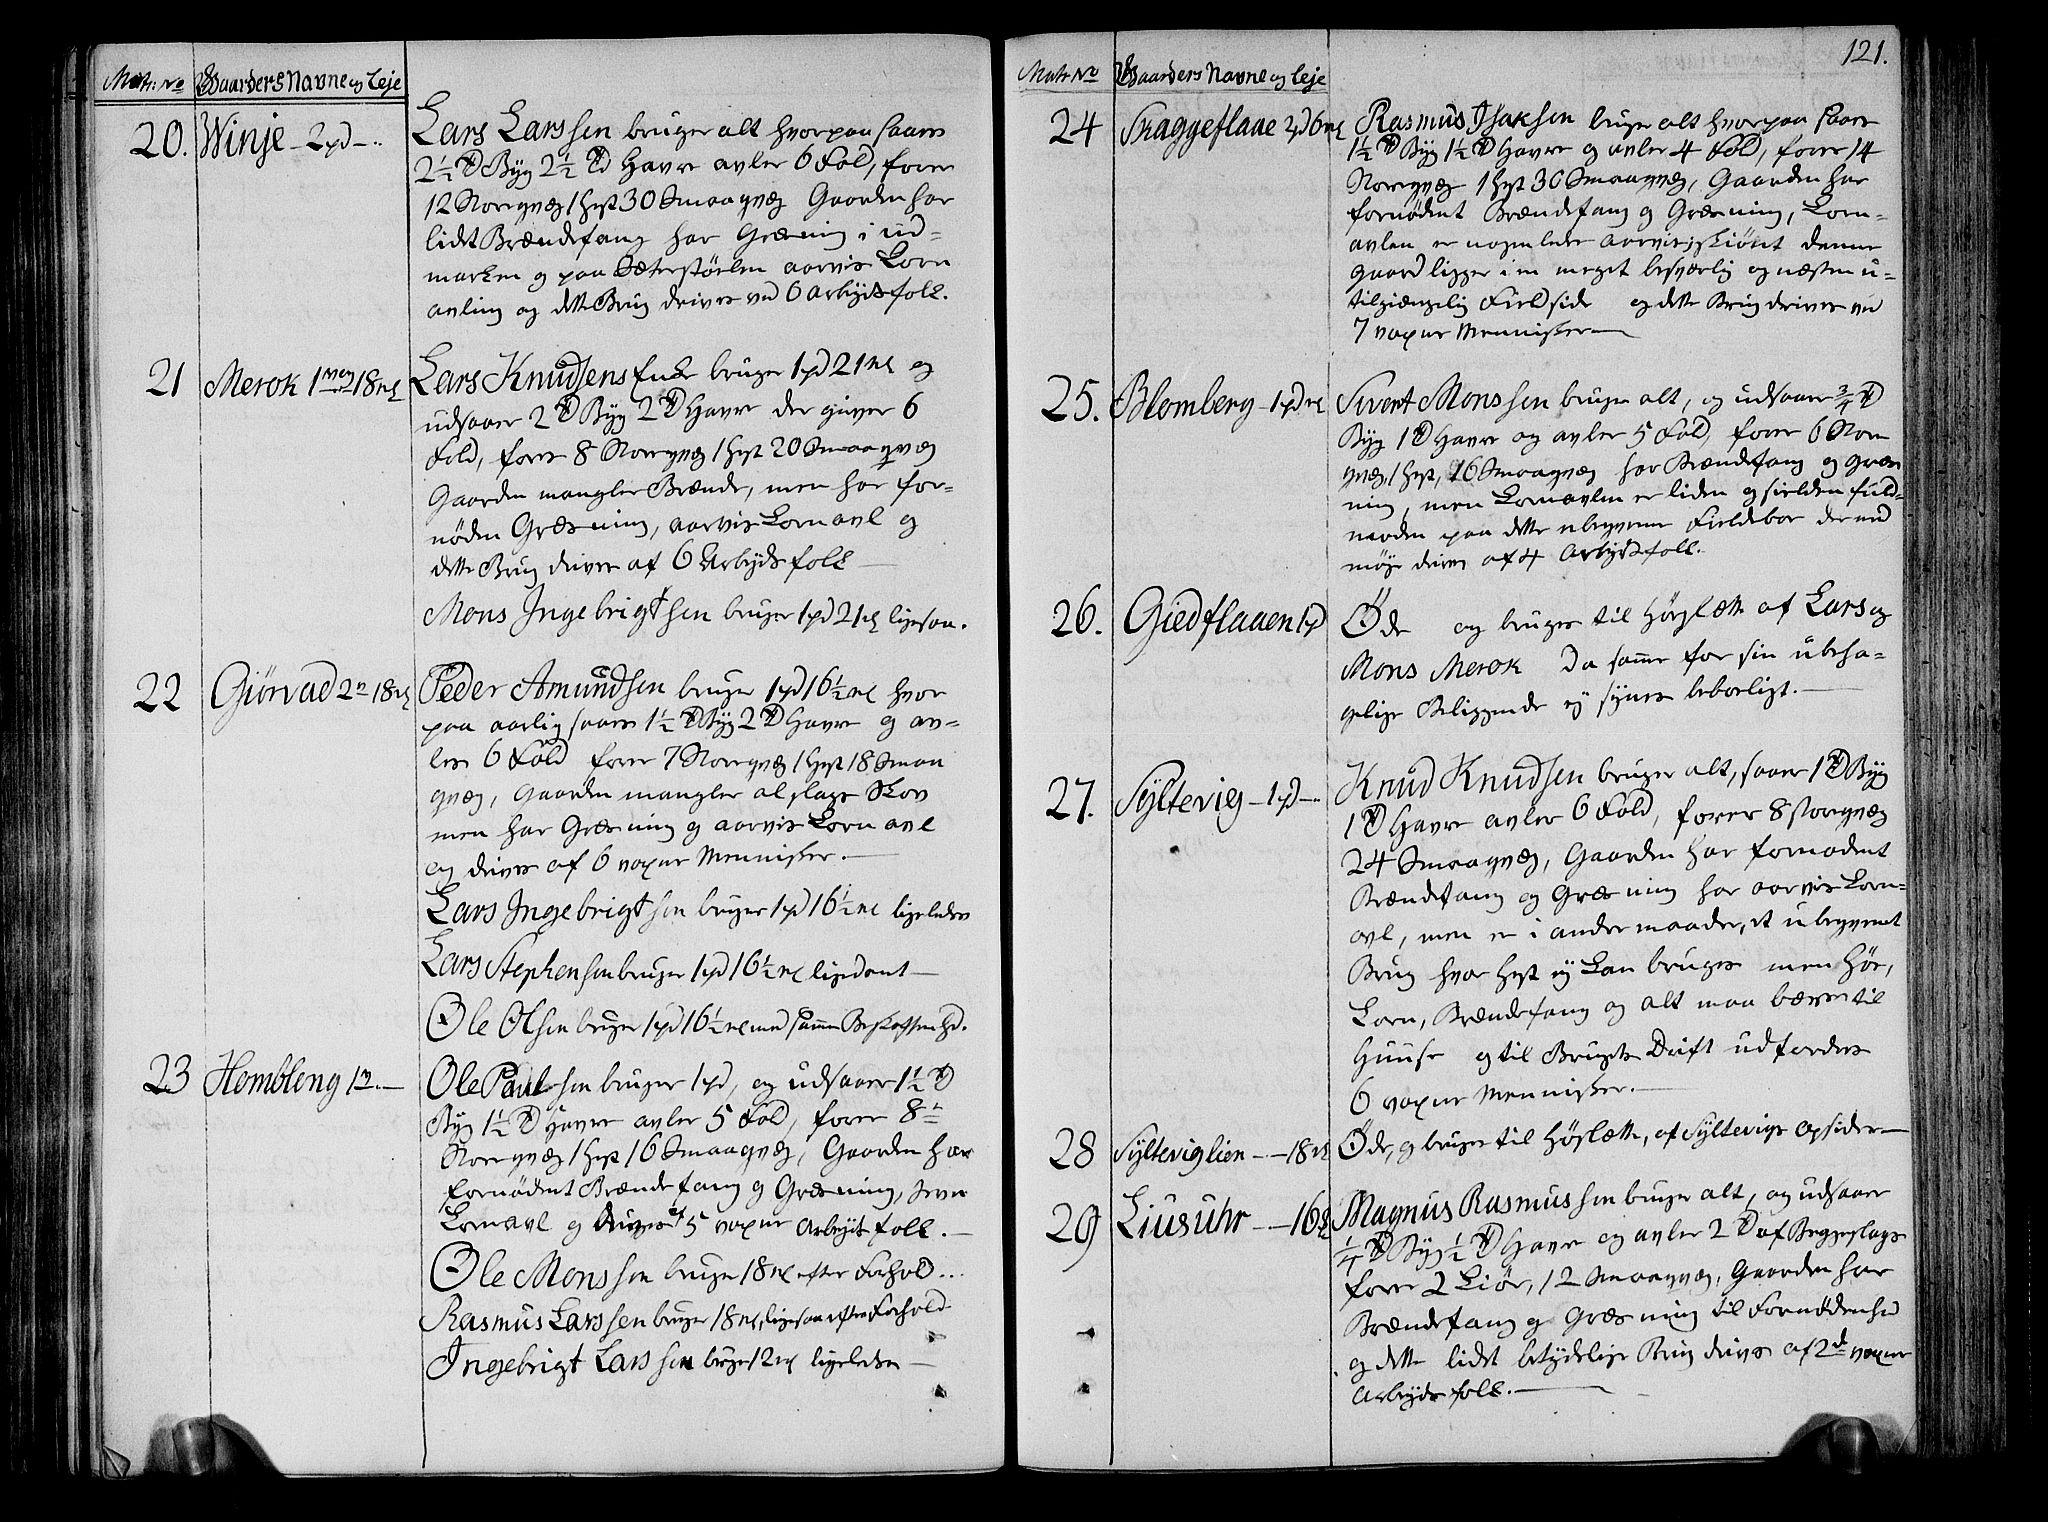 Matr: No Gaarders Navne og Leje
20. Winje - 2 pd - „
Lars Larssen bruger alt hvorpaa saaes
2½ Td Byg 2½ Td Havre avler 6 Fold, forer
12 Storeqvæg 1 hest 30 Smaaqvæg Gaarden har
lidet Brændefang har Græsning i ud-
marken og paa Sæterstølen aarvis Korn
avling og dette Brug drives ved 6 Arbejdsfolk.
21 Merok 1 vog 18 mk
Lars Knudsens Enke bruger 1 pd 21 mk og
udsaaer 2 Td Byg 2 Td Havre der giver 6
Fold, forer 8 Storeqvæg 1 hest 20 Smaaqvæg
Gaarden mangler Brænde, men har for-
nøden Græsning, aarvis Kornavl og
dette Brug drives af 6 Arbejdsfolk —
Mons Ingebrigtsen bruger 1 pd 21 mk ligesaa.
22 Giørvad 2 v 18 mk
Peder Amundsen bruger 1 pd 16½ mk hvor
paa aarlig saaes 1½ Td Byg 2 Td Havre og av-
les 6 Fold forer 7 Storeqvæg 1 hest 18 Smaa
qvæg, Gaarden mangler al slags Skov
men har Græsning og aarvis Kornavl
og drives af 6 voxne Mennisker. —
Lars Ingebrigtsen bruger 1 pd 16½ mk ligeledes
Lars Stephensen bruger 1 pd 16½ mk ligedant —
Ole Olsen bruger 1 pd 16½ mk med samme Beskaffenhd.
23 Hembleng 1 v. —
Ole Paulsen bruger 1 pd, og udsaaer 1½ Td
Byg 1½ Td Havre avler 5 Fold, forer 8
Storeqvæg 1 hest 16 Smaaqvæg, Gaarden har
fornødent Brændefang og Græsning,
Kornavl og drives 5 voxne Arbejdsfolk. —
Ole Monssen bruger 18 mk efter Forhold...
Rasmus Larssen bruger 18 mk, ligesaa efter Forhold
Ingebrigt Larssen bruger 12 mk ligeledes —
121.
Matr No Gaarders Navne og Leje
24 Skaggeflaae 2 pd 6 mk
Rasmus Isaksen bruger alt hvorpaa saaes
1½ Td Byg 1½ Td Havre og avler 4 Fold, forer 14
Storeqvæg 1 hest 30 Smaaqvæg, Gaarden har
fornødent Brændefang og Græsning, Korn-
avlen er nogenledes aarvis, skiønt denne
gaard ligger i en meget besværlig og næsten u-
tilgiængelig Fieldside og dette Brug drives ved
7 voxne Mennisker —
25. Blomberg - 1 pd mk
Sivert Monssen bruger alt, og udsaaer ¾ Td
Byg 1 Td Havre og avler 5 Fold, forer 6 Store
qvæg, 1 hest, 16 Smaaqvæg har Brændefang og Græs
ning, men Kornavlen er liden og sielden fuld-
moden paa dette ubeqvemme Fieldebor der med
møje drives af 4 Arbejdsfolk.
26. Giedflaaen 1 pd
Øde og bruges til Høeslætte af Lars og
Mons Merok da samme for sin ubeha-
gelige Beliggende ej synes beboeligt. —
27. Syltevig - 1 pd - „
Knud Knudsen bruger alt, saaer 1 Td Byg
1 Td Havre avler 6 Fold, forer 8 storeqvæg
24 Smaaqvæg, Gaarden har fornødent
Brændefang og Græsning har aarvis Korn-
avl, men er i andre maader, et ubeqvemt
Brug hvor hest ej kan bruges men Høe,
Korn, Brændefang og alt maa bæres til
Huuse og til Brugets Drift udfordres
6 voxne Mennisker. —
28 Sylteviglien - - 18 mk
Øde, og bruges til Høslætte, af Syltevigs Opsidere —
29 Liusuhr - - 16 mk
Magnus Rasmussen bruger alt, og udsaaer
¼ Td Byg ½ Td Havre og avler 2 Td af Beggeslags
forer 2 Kiør, 12 Smaaqvæg, Gaarden har
Brændefang og Græsning til Fornødenhed
og dette lidet betydelige Brug drives af 2de voxne
Arbejdsfolk. —